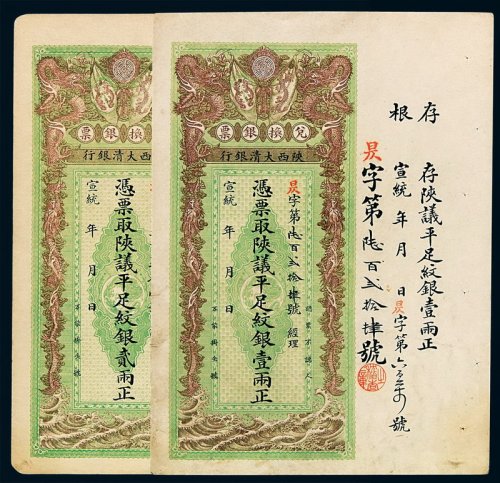 存根
存陝議平足紋銀壹兩正
宣統 年 月 日 昃字第 號
昃字第陸百弍拾肆號
兌換銀票
陝西大清銀行
昃字第陸百弍拾肆號 經理
認票不認人
憑票取陝議平足紋銀壹兩正
宣統 年 月 日
換銀票
西大清銀行
憑票取陝議平足紋銀貳兩正
宣統 年 月 日